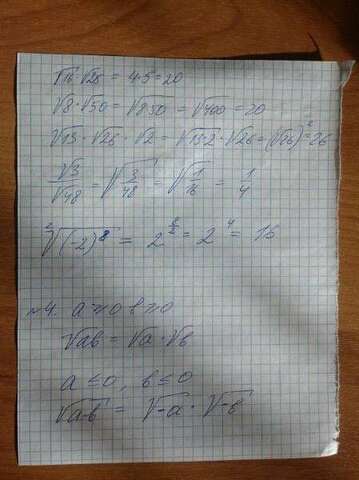 √16 · √25 = 4·5 = 20
√8 · √50 = √8·50 = √400 = 20
√13 · √26 · √2 = √13·2 · √26 = (√26)² = 26
√3/√48 = √(3/48) = √(1/16) = 1/4
²√(-2)⁸ = 2^(8/2) = 2⁴ = 16
№4. a ≥ 0 b ≥ 0
√ab = √a · √b
a ≤ 0, b ≤ 0
√a·b = √-a · √-b